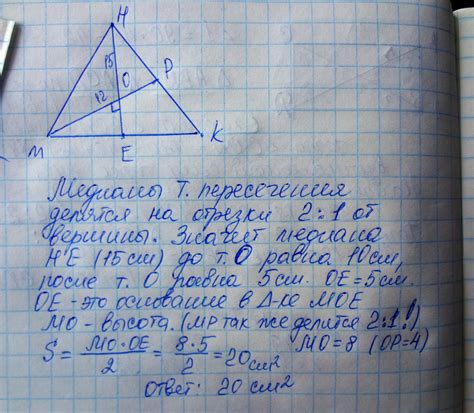 Н
15
О
Р
12
М
Е
К
Медианы т. пересечения
делятся на отрезки 2:1 от
вершины. Значит медиана
НЕ (15см) до т.О равна 10см,
после т. О равна 5см. ОЕ=5см.
ОЕ - это основание в Δ-ке МОЕ
МО - высота. (МР так же делится 2:1!)
S = МО·ОЕ/2 = 8·5/2 = 20см² МО=8 (ОР=4)
Ответ: 20 см²